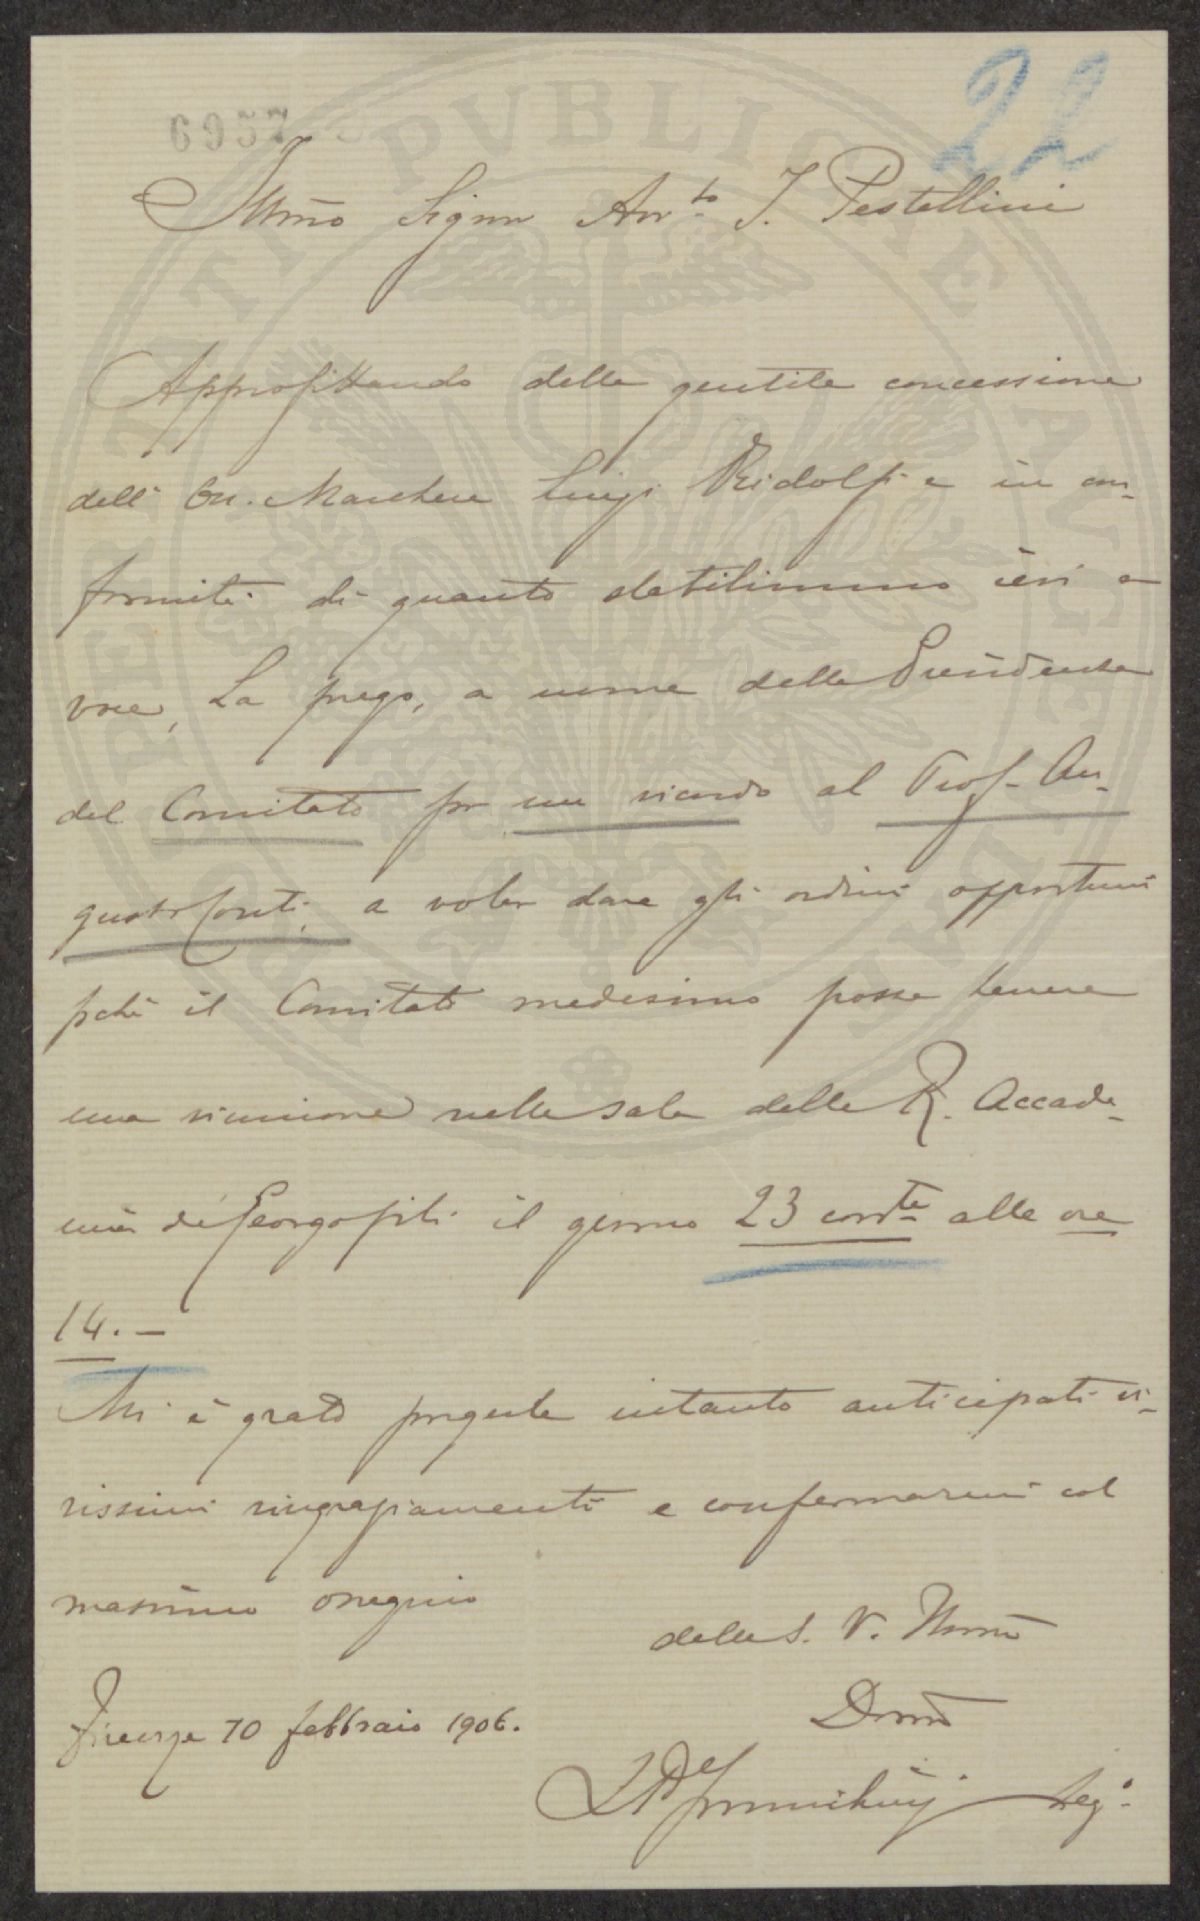 22
6957
Illmo Signor Avv.to I. Pestellini
Approfittando della gentile concessione
dell' On. Marchese Luigi Ridolfi e in con-
formità di quanto stabilimmo ieri a
voce, La prego, a nome della Presidenza
del Comitato per un ricordo al Prof. Au-
gusto Conti, a voler dare gli ordini opportuni
pchè il Comitato medesimo possa tenere
una riunione nelle sale della R. Accade-
mia dei Georgofili il giorno 23 corrte alle ore
14. –
Mi è grato porgerle intanto anticipati vi-
vissimi ringraziamenti e confermarmi col
massimo ossequio
della S. V. Illma
Firenze 10 febbraio 1906.
Devmo
Seg.o
REI PVBLICAE AVGENDAE